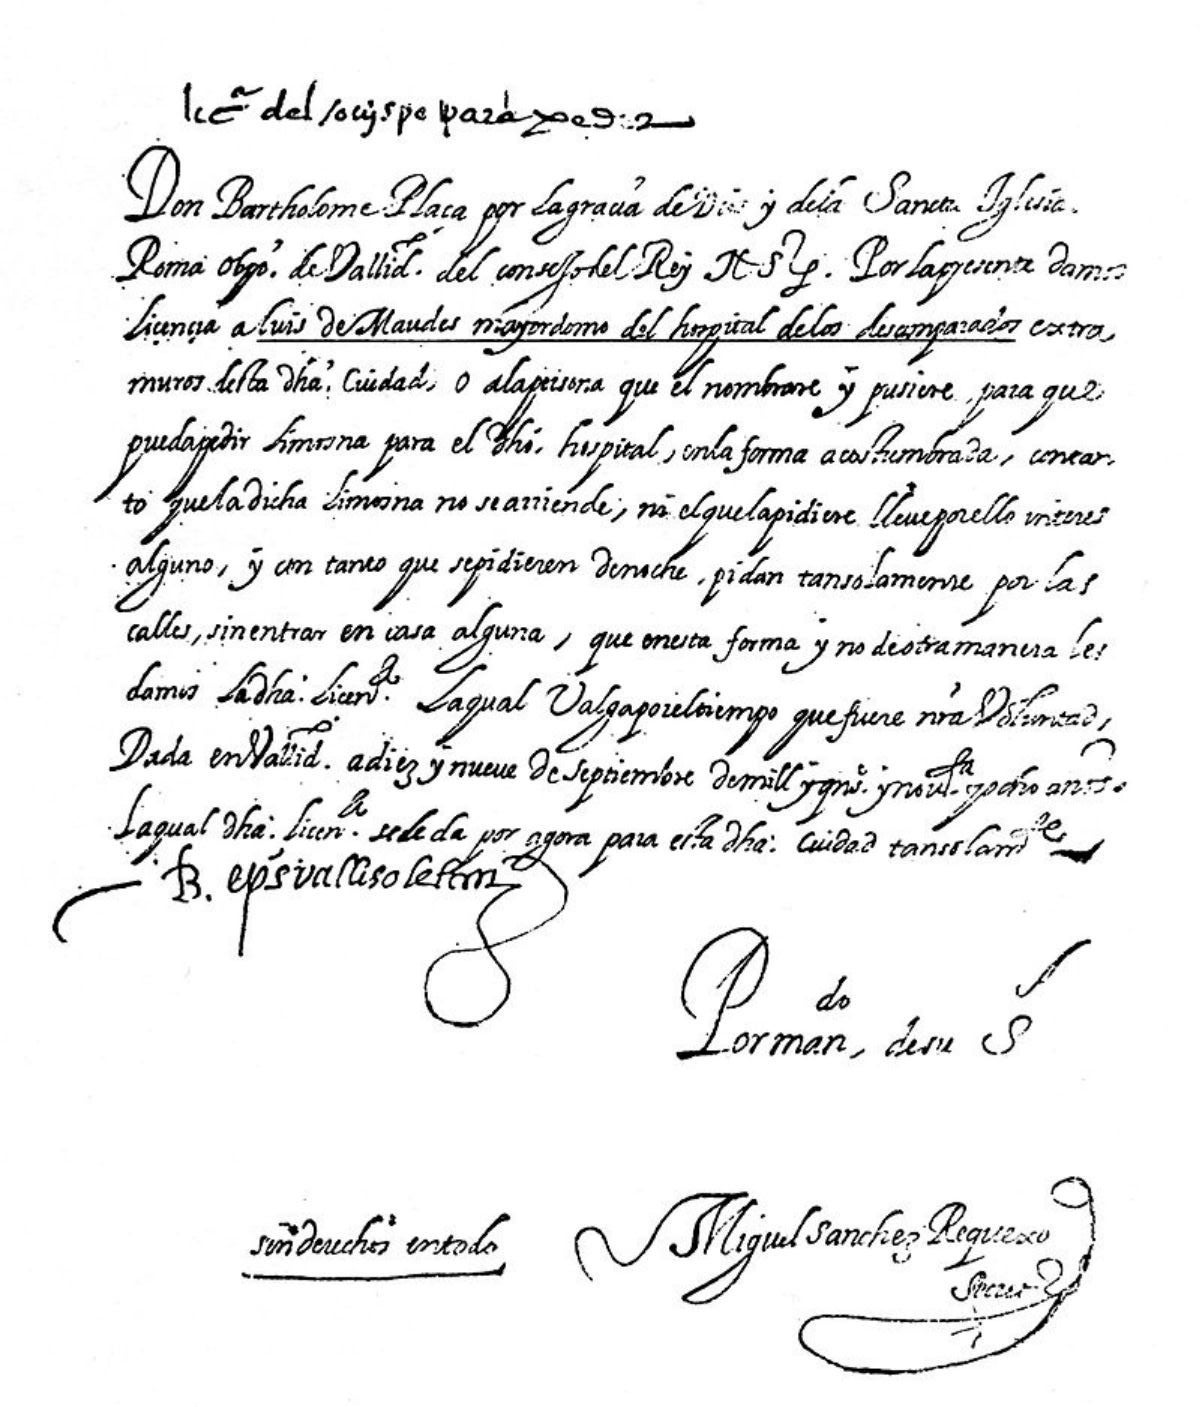 licª del sr obispo para pedir
Don Bartholome Plaça por la gracia de Dios y de la Sancta Iglesia.
Roma obpo. de Vallid. del consejo del Rey N. Sr. Por la presente damos
Licencia a luis de Maudes mayordomo del hospital delos desamparados extra,
muros. desta dha. Ciudad, o ala persona que el nombrare y pusiere, para que
pueda pedir limosna para el dho. hospital, en la forma acostumbrada, contan-
to que la dicha limosna no se arriende, ni el que la pidiere lleve por ello interes
alguno, y con tanto que se pidieren de noche, pidan tan solamente por las
calles, sin entrar en casa alguna, que en esta forma y no de otra manera les
damos la dha. licenª. Laqual Valga por el tiempo que fuere nra Voluntad,
Dada en Vallid. a diez y nueve de septiembre de mill y qnºs. y novta. y ocho años.
Laqual dha. licenª. se le da por agora para esta dha. Ciudad tan solamte
B. eps vallisoletan
Por mando, de su S
sin derechos en todo
Miguel Sanchez Requexo
Secret